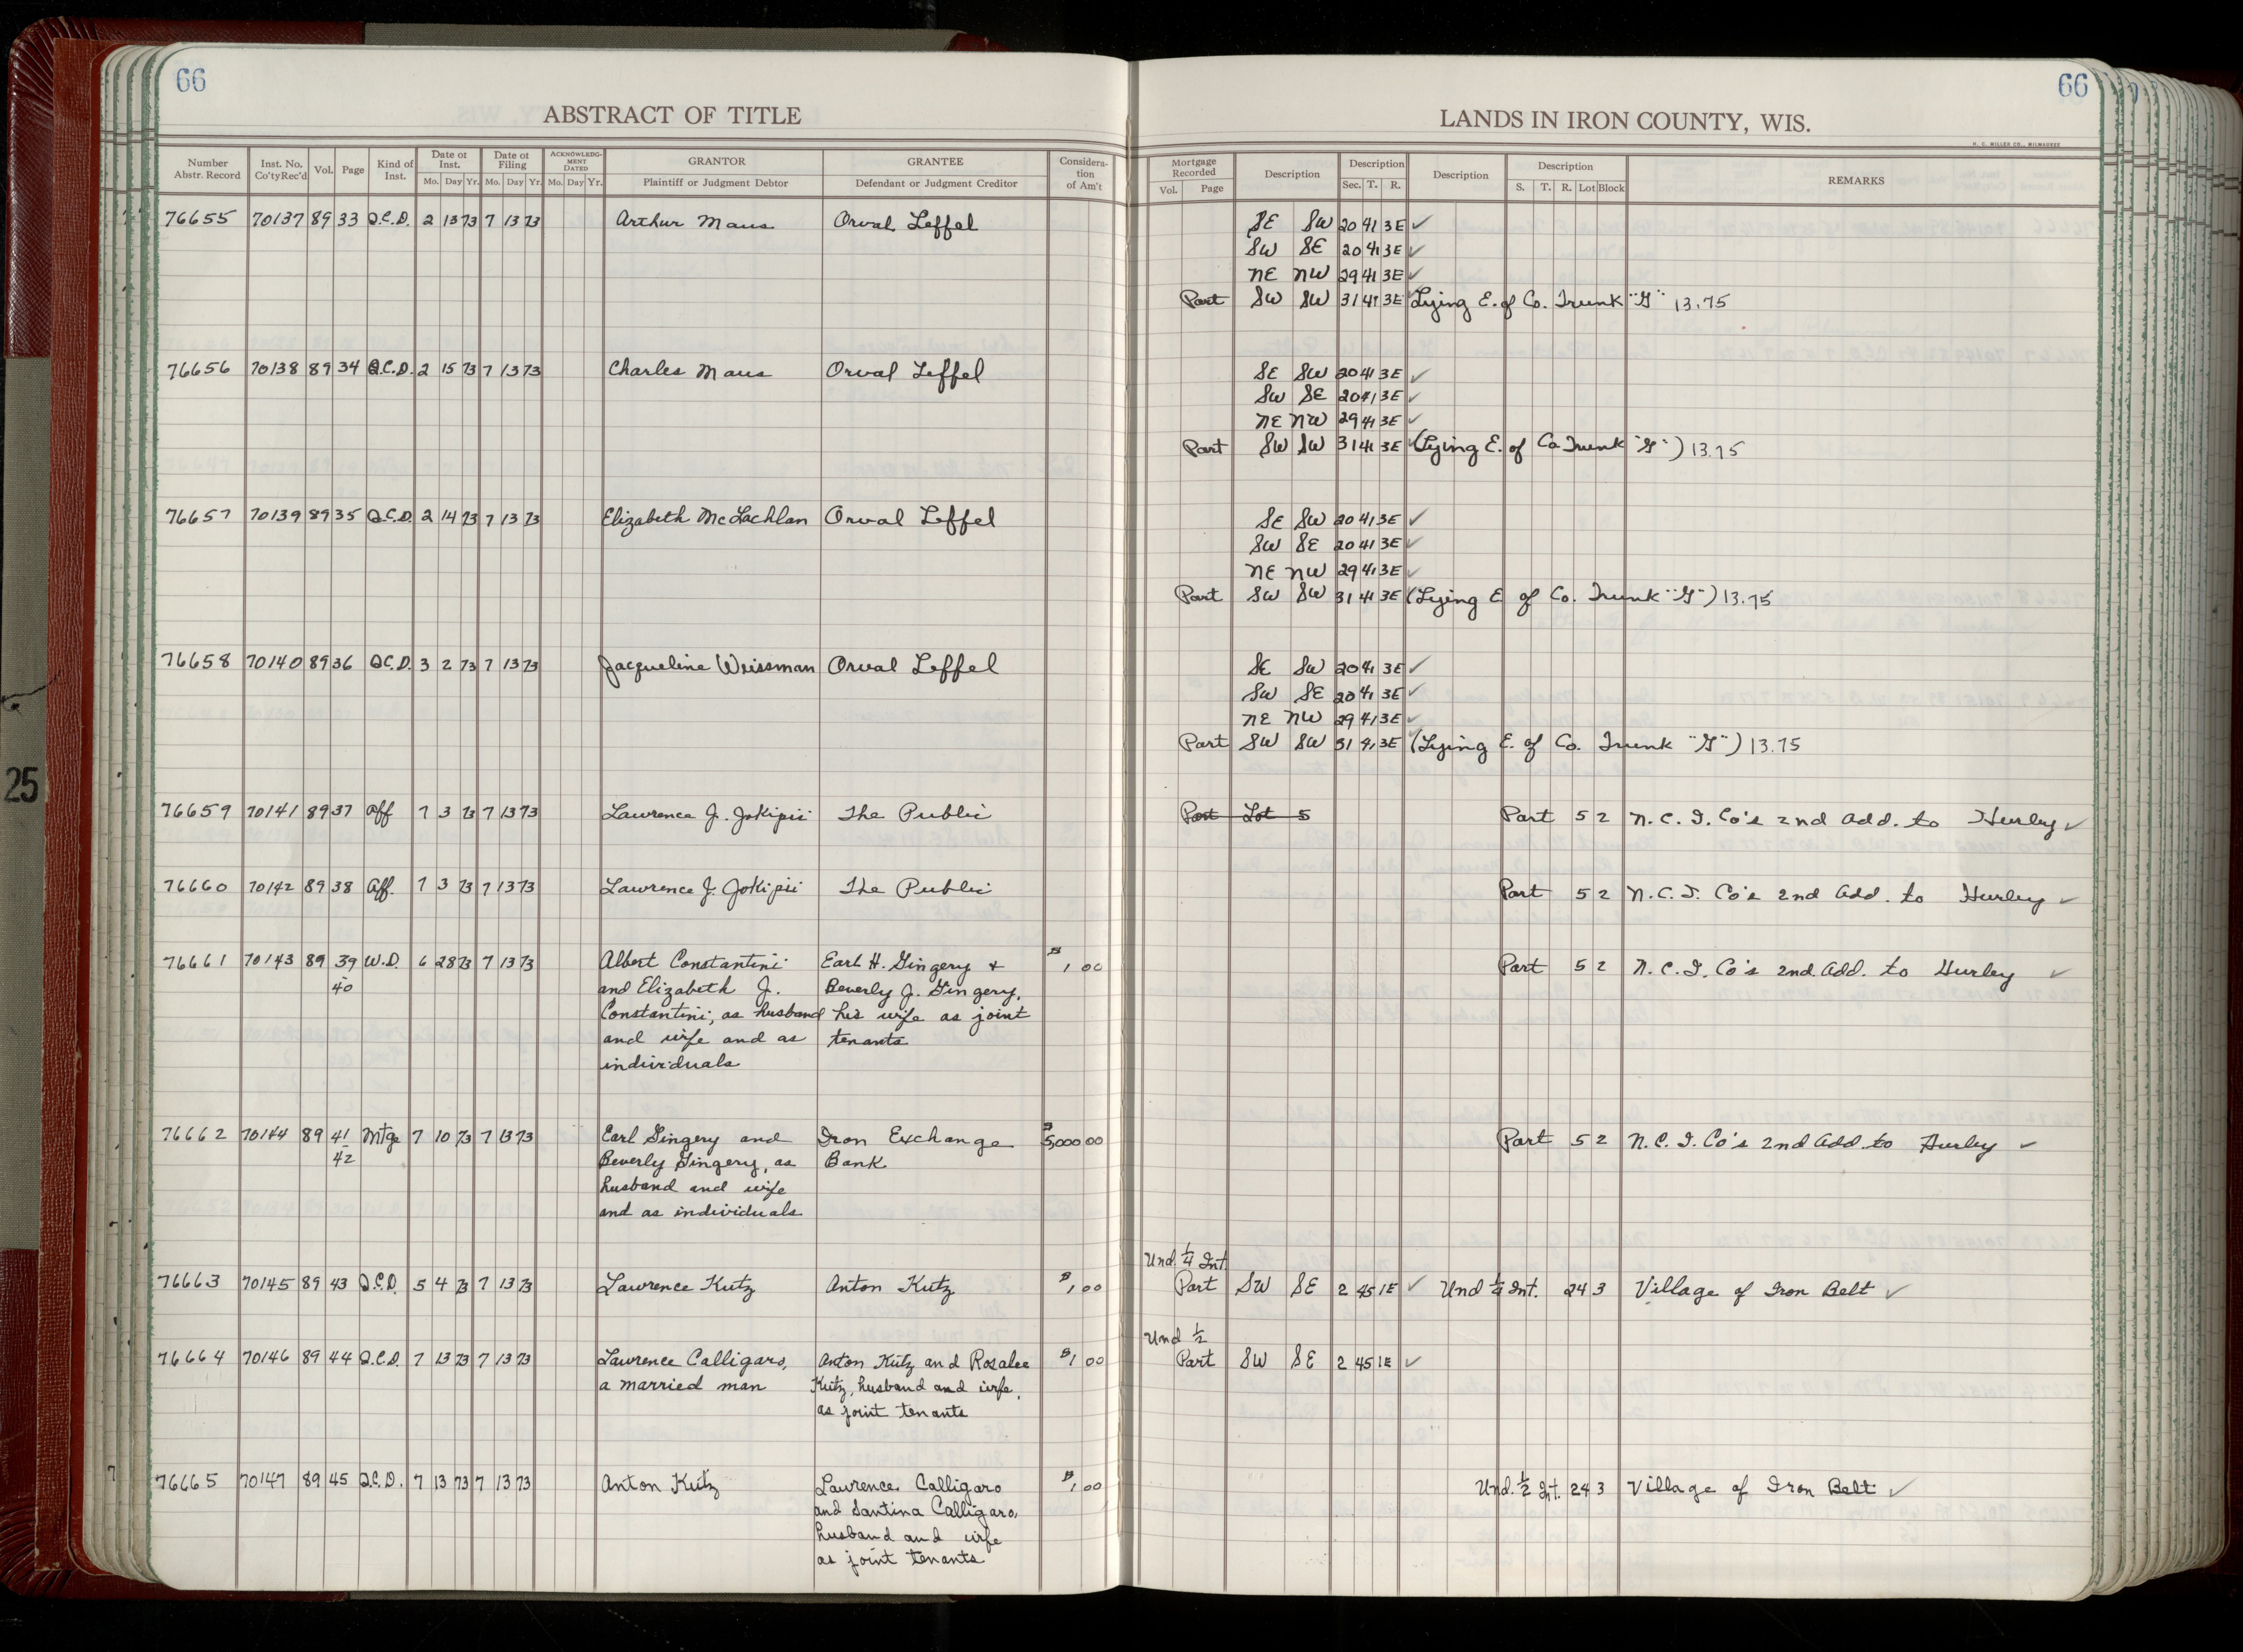 66
66
ABSTRACT OF TITLE
LANDS IN IRON COUNTY, WIS.
H. C. MILLER CO., MILWAUKEE
Number Abstr. Record | Inst. No. Co'ty Rec'd | Vol. | Page | Kind of Inst. | Date of Inst. Mo. Day Yr. | Date of Filing Mo. Day Yr. | ACKNOWLEDGMENT DATED Mo. Day Yr. | GRANTOR Plaintiff or Judgment Debtor | GRANTEE Defendant or Judgment Creditor | Consideration of Am't | Mortgage Recorded Vol. Page | Description | Description Sec. T. R. | Description | Description S. T. R. Lot Block | REMARKS
76655 70137 89 33 Q.C.D. 2 13 73 7 13 73 Arthur Maus Orval Leffel SE SW 20 41 3E ✓
SW SE 20 41 3E ✓
NE NW 29 41 3E ✓
Part SW SW 31 41 3E Lying E. of Co. Trunk "G" 13.75
76656 70138 89 34 Q.C.D. 2 15 73 7 13 73 Charles Maus Orval Leffel SE SW 20 41 3E ✓
SW SE 20 41 3E ✓
NE NW 29 41 3E ✓
Part SW SW 31 41 3E (Lying E. of Co Trunk "G") 13.75
76657 70139 89 35 Q.C.D. 2 14 73 7 13 73 Elizabeth McLachlan Orval Leffel SE SW 20 41 3E ✓
SW SE 20 41 3E ✓
NE NW 29 41 3E ✓
Part SW SW 31 41 3E (Lying E of Co. Trunk "G") 13.75
76658 70140 89 36 Q.C.D. 3 2 73 7 13 73 Jacqueline Weissman Orval Leffel SE SW 20 41 3E ✓
SW SE 20 41 3E ✓
NE NW 29 41 3E ✓
Part SW SW 31 41 3E (Lying E. of Co. Trunk "G") 13.75
25
76659 70141 89 37 Aff 7 3 73 7 13 73 Lawrence J. Jokipii The Public Part Lot 5 Part 5 2 N.C.I. Co's 2nd Add. to Hurley ✓
76660 70142 89 38 Aff. 7 3 73 7 13 73 Lawrence J. Jokipii The Public Part 5 2 N.C.I. Co's 2nd Add. to Hurley ✓
76661 70143 89 39 W.D. 6 28 73 7 13 73 Albert Constantini Earl H. Gingery + $1.00 Part 5 2 N.C.I. Co's 2nd Add. to Hurley ✓
- 40 and Elizabeth J. Beverly J. Gingery,
Constantini, as husband his wife as joint
and wife and as tenants
individuals
76662 70144 89 41 Mtge 7 10 73 7 13 73 Earl Gingery and Iron Exchange $5,000 00 Part 5 2 N.C.I. Co's 2nd Add. to Hurley ✓
- 42 Beverly Gingery, as Bank
husband and wife
and as individuals
Und. 1/4 Int.
76663 70145 89 43 Q.C.D. 5 4 73 7 13 73 Lawrence Kutz Anton Kutz $1.00 Part SW SE 2 45 1E ✓ Und 1/4 Int. 24 3 Village of Iron Belt ✓
Und 1/2
76664 70146 89 44 Q.C.D. 7 13 73 7 13 73 Lawrence Calligaro, Anton Kutz and Rosalee $1 00 Part SW SE 2 45 1E ✓
a married man Kutz, husband and wife,
as joint tenants
76665 70147 89 45 Q.C.D. 7 13 73 7 13 73 Anton Kutz Lawrence Calligaro $1.00 Und. 1/2 Int. 24 3 Village of Iron Belt ✓
and Santina Calligaro,
husband and wife
as joint tenants